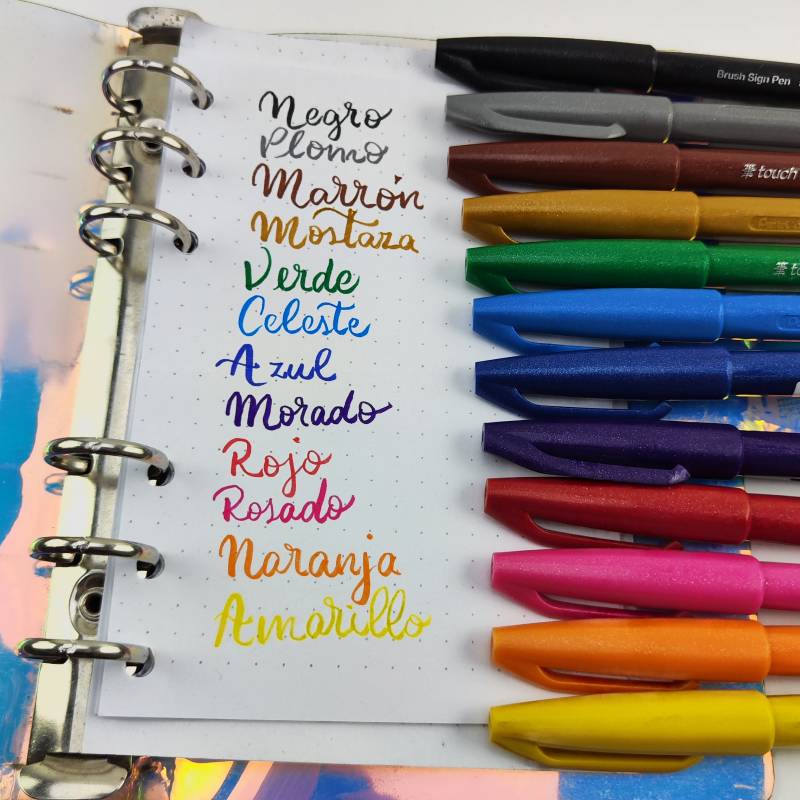 Negro
Plomo
Marrón
Mostaza
Verde
Celeste
Azul
Morado
Rojo
Rosado
Naranja
Amarillo
Brush Sign Pen
筆touch
筆to